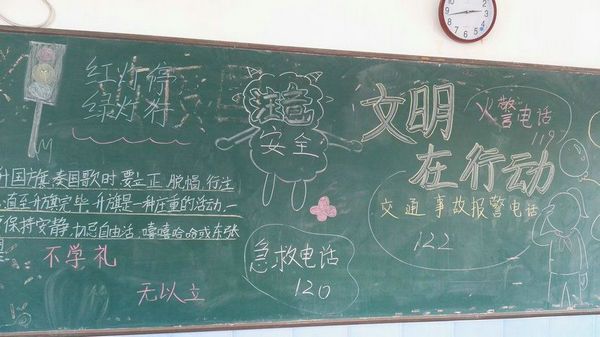 红灯停
绿灯行
注意
安全
升国旗奏国歌时要立正,脱帽,行注
直至升旗完毕,升旗是一种庄重的活动一
保持安静,切忌自由活,嘻嘻哈哈或东张
不学礼
无以立
急救电话
120
文明
在行动
火警电话
119
交通事故报警电话
122